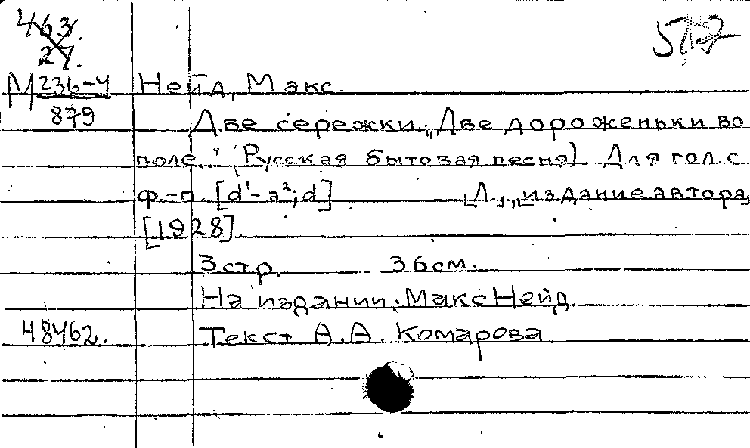 463.
27.
512
М 236-4
879
Нейд, Макс.
Две сережки. „Две дороженьки во
поле..." (Русская бытовая песня). Для гол. с
ф.-п. [d¹-a²; d] [Л.], издание автора,
[1928].
3 стр. 36 см.
На издании: Макс Нейд.
48462.
Текст А.А. Комарова